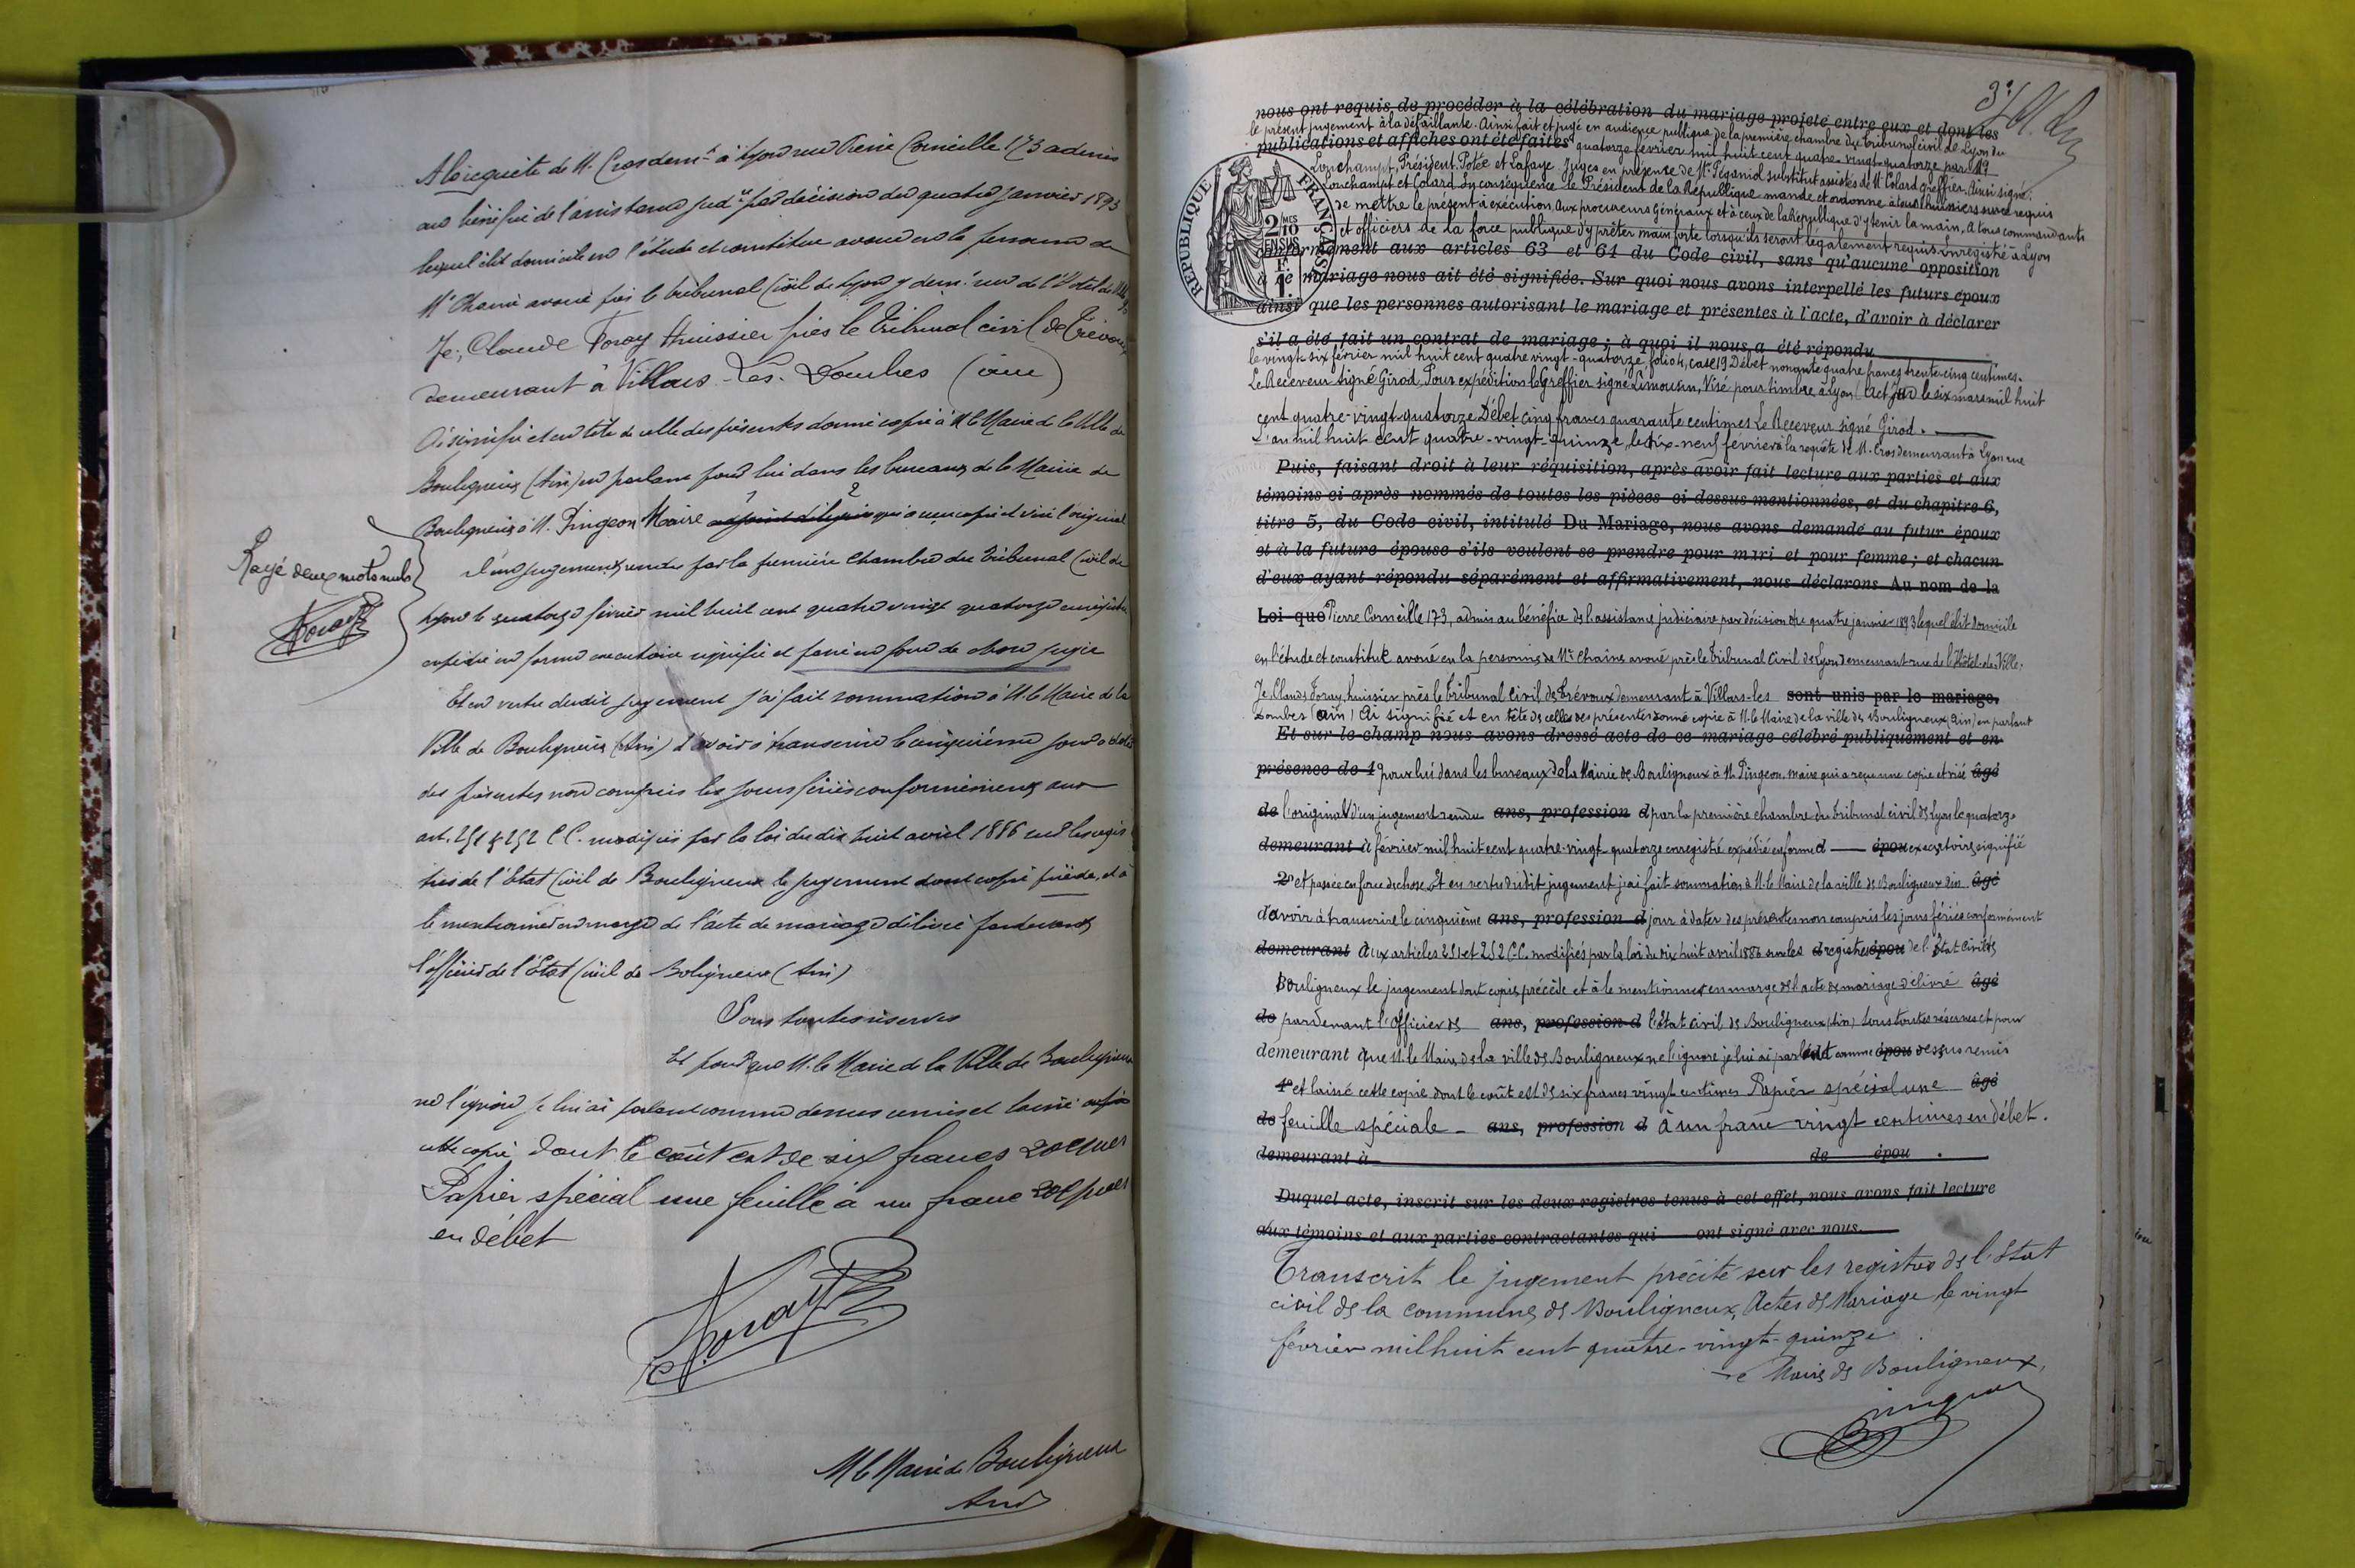 A la requête de M. Cros demt à Lyon rue Pierre Corneille 173 admis
au bénéfice de l'assistance judre par décision du quatre janvier 1893
lequel élit domicile en l'étude et constitue avoué en la personne de
Me Chaine avoué près le tribunal Civil de Lyon y demt rue de l'Hôtel de Ville
Je, Claude Foray Huissier près le Tribunal civil de Trévoux
demeurant à Villars-les-Dombes (ain)
Ai signifié et en tête de celle des présentes donné copie à M le Maire de la Ville de
Bouligneux (Ain) en parlant pour lui dans les bureaux de la Mairie de
Bouligneux à M. Pingeon Maire qui a reçu copie et visé l'original
Rayé deux mots nuls
Foray
d'un jugement rendu par la première chambre du Tribunal Civil de
Lyon le quatorze février mil huit cent quatre vingt quatorze enregistré
expédié en forme exécutoire signifié et passé en force de chose jugée
Et en vertu dudit jugement j'ai fait sommation à M le Maire de la
Ville de Bouligneux (Ain) d'avoir à transcrire le cinquième jour à dater
des présentes non compris les jours fériés conformément aux
art. 251 & 252 C.C. modifiés par la loi du dix huit avril 1886 sur les regis
tres de l'Etat Civil de Bouligneux le jugement dont copie précède, et à
le mentionner en marge de l'acte de mariage délivré pardevant
l'officier de l'Etat Civil de Boligneux (Ain)
Sous toutes réserves
Et pour que M. le Maire de la Ville de Bouligneux
ne l'ignore je lui ai parlant comme dessus remis et laissé
cette copie dont le coût est de six francs 20
Papier spécial une feuille à un franc 20
en débet
Foray
M le Maire de Bouligneux
Ain
37
nous ont requis de procéder à la célébration du mariage projeté entre eux et dont les
le présent jugement à la défaillante. Ainsi fait et jugé en audience publique de la première chambre du Tribunal civil de Lyon du
publications et affiches ont été faites quatorze février mil huit cent quatre-vingt-quatorze par M
Lonchampt, Président. Potée et Lafaye Juges en présence de Mr Péganid substitut assistés de M. Colard greffier. Ainsi signé:
Lonchampt et Colard. En conséquence le Président de la République mande et ordonne à tous huissiers sur ce requis
de mettre le présent à exécution. Aux procureurs Généraux et à ceux de la République d'y tenir la main, A tous commandants
et officiers de la force publique d'y prêter main forte lorsqu'ils seront légalement requis. Enregistré à Lyon
RÉPUBLIQUE FRANÇAISE
2 MES 10 EN SUS
1 F.
conformément aux articles 63 et 64 du Code civil, sans qu'aucune opposition
à ce mariage nous ait été signifiée. Sur quoi nous avons interpellé les futurs époux
ainsi que les personnes autorisant le mariage et présentes à l'acte, d'avoir à déclarer
s'il a été fait un contrat de mariage ; à quoi il nous a été répondu
le vingt six février mil huit cent quatre vingt-quatorze folio 4, case 19 Débet nonante quatre francs trente-cinq centimes.
Le Receveur signé Girod. Pour expédition le Greffier signé Limousin, Visé pour timbre à Lyon (Act Jud) le six mars mil huit
cent quatre-vingt-quatorze Débet cinq francs quarante centimes Le Receveur signé Girod.
L'an mil huit cent quatre-vingt-quinze, le dix-neuf février à la requête de M. Cros demeurant à Lyon rue
Puis, faisant droit à leur réquisition, après avoir fait lecture aux parties et aux
témoins ci après nommés de toutes les pièces ci dessus mentionnées, et du chapitre 6,
titre 5, du Code civil, intitulé Du Mariage, nous avons demandé au futur époux
et à la future épouse s'ils veulent se prendre pour mari et pour femme ; et chacun
d'eux ayant répondu séparément et affirmativement, nous déclarons Au nom de la
Loi que Pierre Corneille 173, admis au bénéfice de l'assistance judiciaire par décision du quatre janvier 1893 lequel élit domicile
en l'étude et constitue avoué en la personne de Me Chaine avoué près le Tribunal Civil de Lyon demeurant rue de l'Hôtel-de-Ville.
Je Claude Foray, huissier près le Tribunal Civil de Trévoux demeurant à Villars-les sont unis par le mariage.
Dombes (ain) Ai signifié et en tête de celles des présentes donné copie à M. le Maire de la ville de Bouligneux (Ain) en parlant
Et sur le champ nous avons dressé acte de ce mariage célébré publiquement et en
présence de 1° pour lui dans les bureaux de la Mairie de Bouligneux à M. Pingeon, maire qui a reçu une copie et visé âgé
de l'original d'un jugement rendu ans, profession d par la première chambre du Tribunal civil de Lyon le quatorze
demeurant à février mil huit cent quatre-vingt quatorze enregistré expédié en forme d épou exécutoire, signifié
2° et passée en force de chose. Et en vertu dudit jugement j'ai fait sommation à M. le Maire de la ville de Bouligneux Ain âgé
d'avoir à transcrire le cinquième ans, profession d jour à dater des présentes non compris les jours fériés conformément
demeurant aux articles 251 et 252 C.C. modifiés par la loi du dix huit avril 1886 sur les d registres épou de l'Etat Civil de
Bouligneux le jugement dont copie précède et à le mentionner en marge de l'acte de mariage délivré âgé
de pardevant l'officier de ans, profession d l'Etat Civil de Bouligneux (Ain) Sous toutes réserves et pour
demeurant que M. le Maire de la ville de Bouligneux ne l'ignore je lui ai parlant comme épou dessus remis
4° et laissé cette copie dont le coût est de six francs vingt centimes Papier spécial une âgé
de feuille spéciale ans, profession d à un franc vingt centimes en débet.
demeurant à de épou .
Duquel acte, inscrit sur les deux registres tenus à cet effet, nous avons fait lecture
aux témoins et aux parties contractantes qui ont signé avec nous.
Transcrit le jugement précité sur les registres de l'Etat
civil de la commune de Bouligneux, Actes de Mariage le vingt
février mil huit cent quatre-vingt-quinze.
Le Maire de Bouligneux,
Pingeon